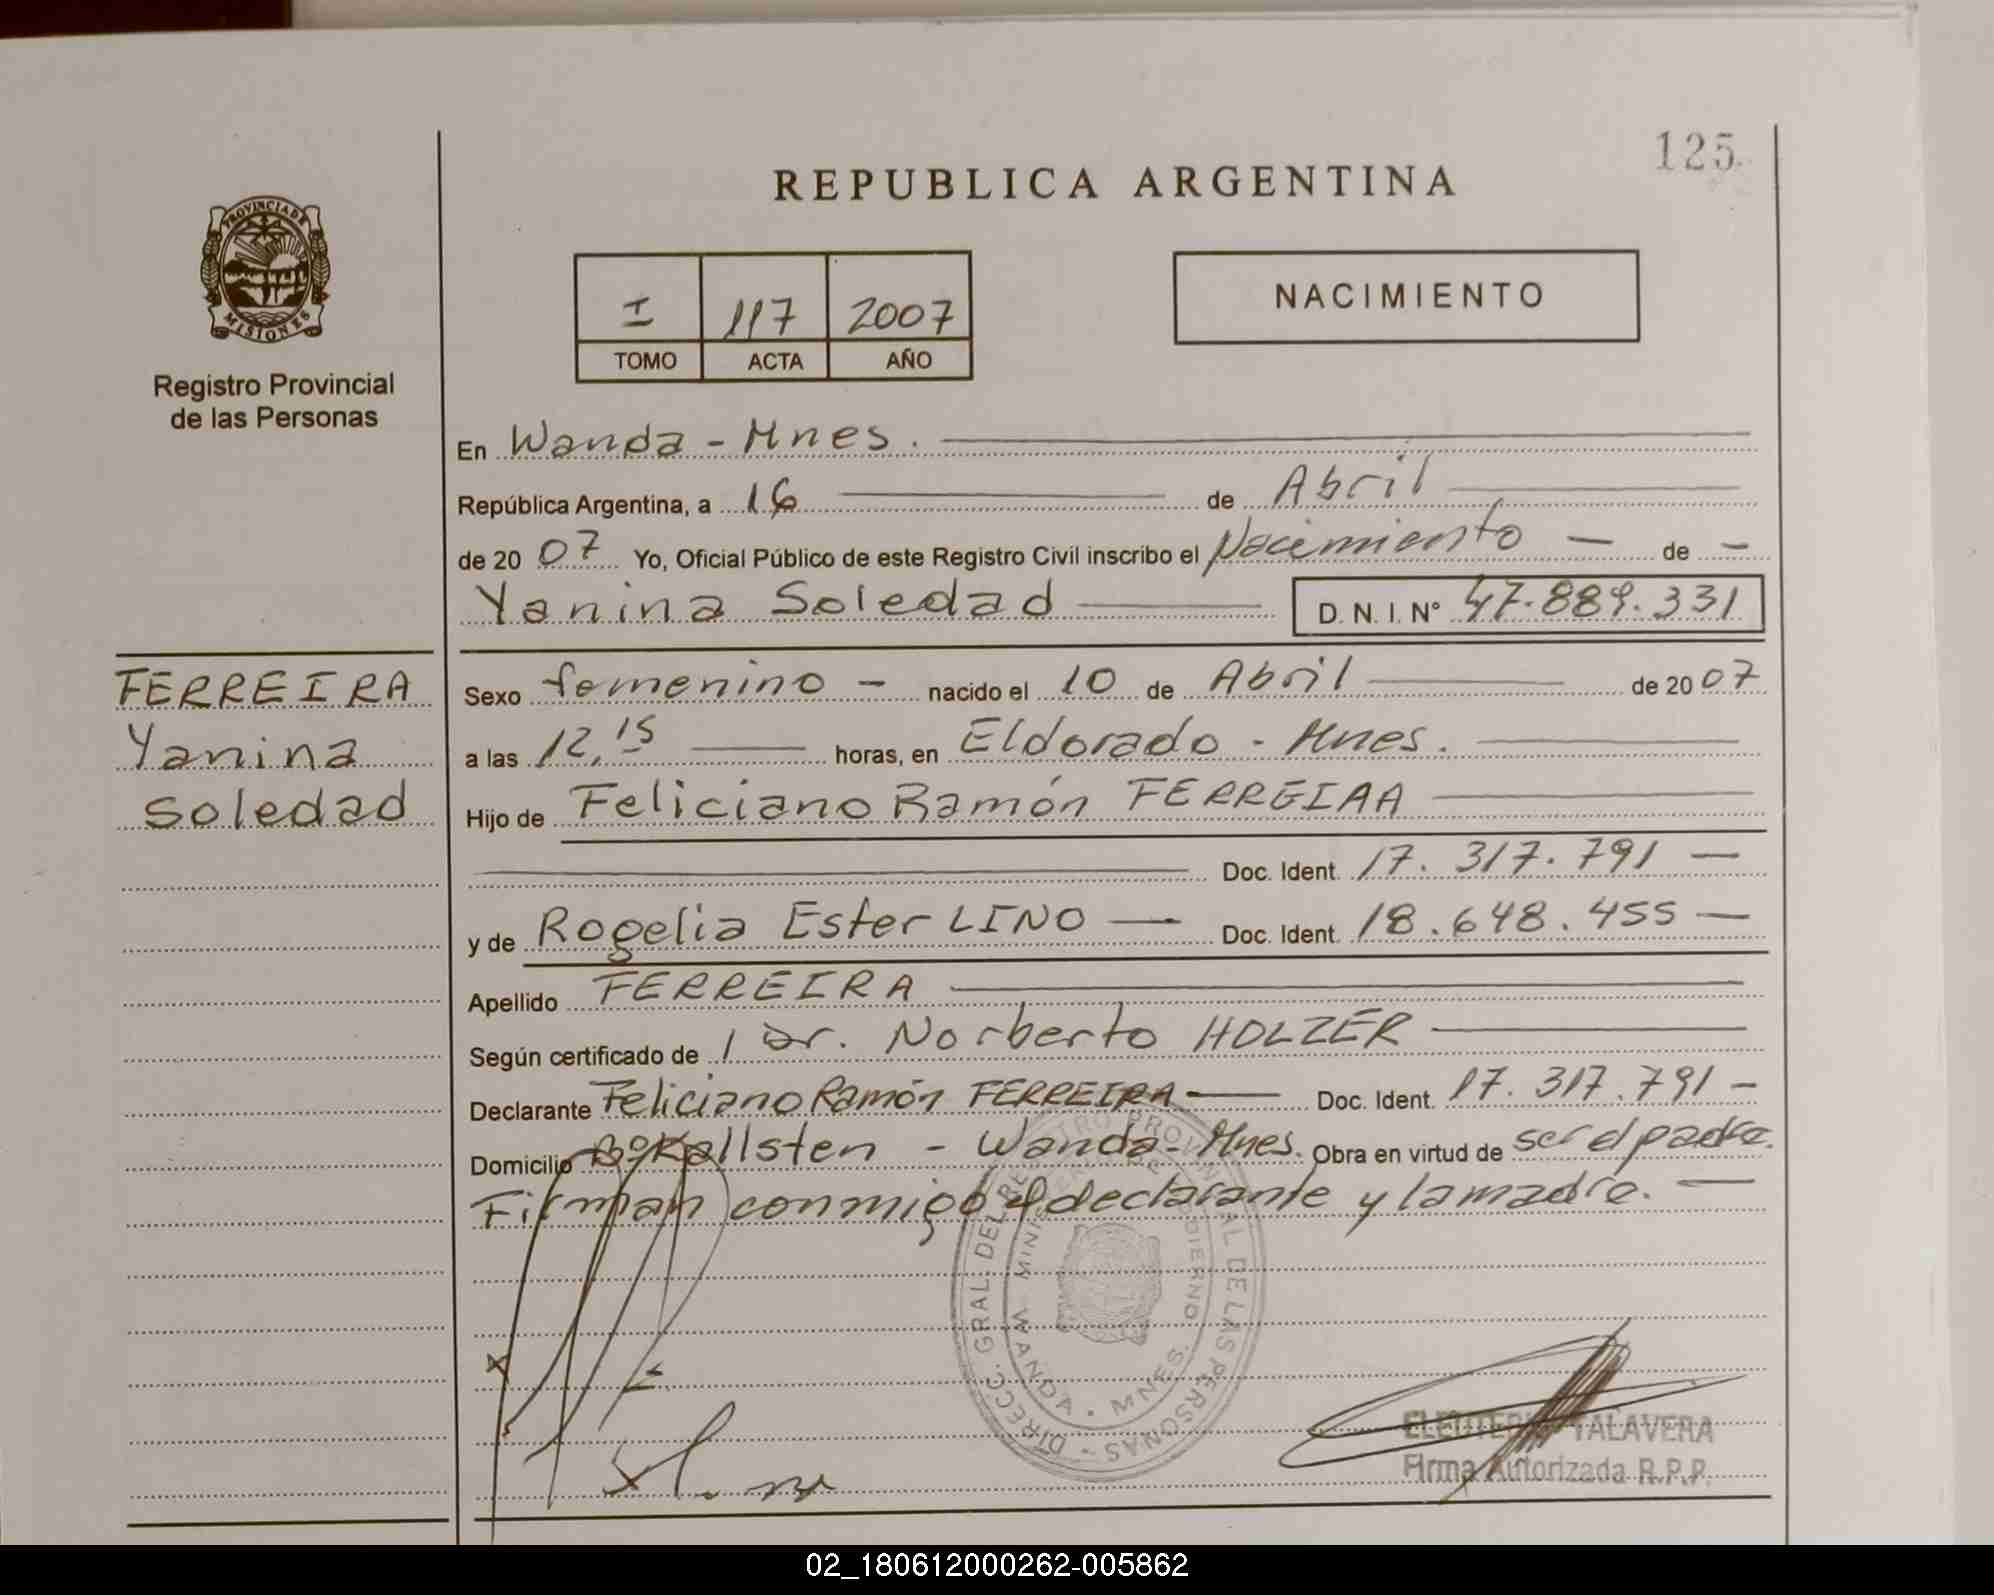 125
REPUBLICA ARGENTINA
PROVINCIA DE
MISIONES
Registro Provincial
de las Personas
I 117 2007
TOMO ACTA AÑO
NACIMIENTO
En Wanda - Mnes.
República Argentina, a 16 de Abril
de 20 07 Yo, Oficial Público de este Registro Civil inscribo el Nacimiento - de -
Yanina Soledad D. N. I. N° 47.889.331
FERREIRA
Yanina
Soledad
Sexo femenino - nacido el 10 de Abril de 20 07
a las 12,15 horas, en Eldorado - Mnes.
Hijo de Feliciano Ramón FERREIRA
Doc. Ident. 17.317.791 -
y de Rogelia Ester LINO - Doc. Ident. 18.648.455 -
Apellido FERREIRA
Según certificado de / Dr. Norberto HOLZER
Declarante Feliciano Ramón FERREIRA - Doc. Ident. 17.317.791 -
Domicilio B° Kallsten - Wanda - Mnes. Obra en virtud de ser el padre.
Firman conmigo el declarante y la madre. -
DIRECC. GRAL. DEL REGISTRO PROVINCIAL DE LAS PERSONAS -
WANDA - MNES.
ELEUTERIO TALAVERA
Firma Autorizada R.P.P.
02_180612000262-005862